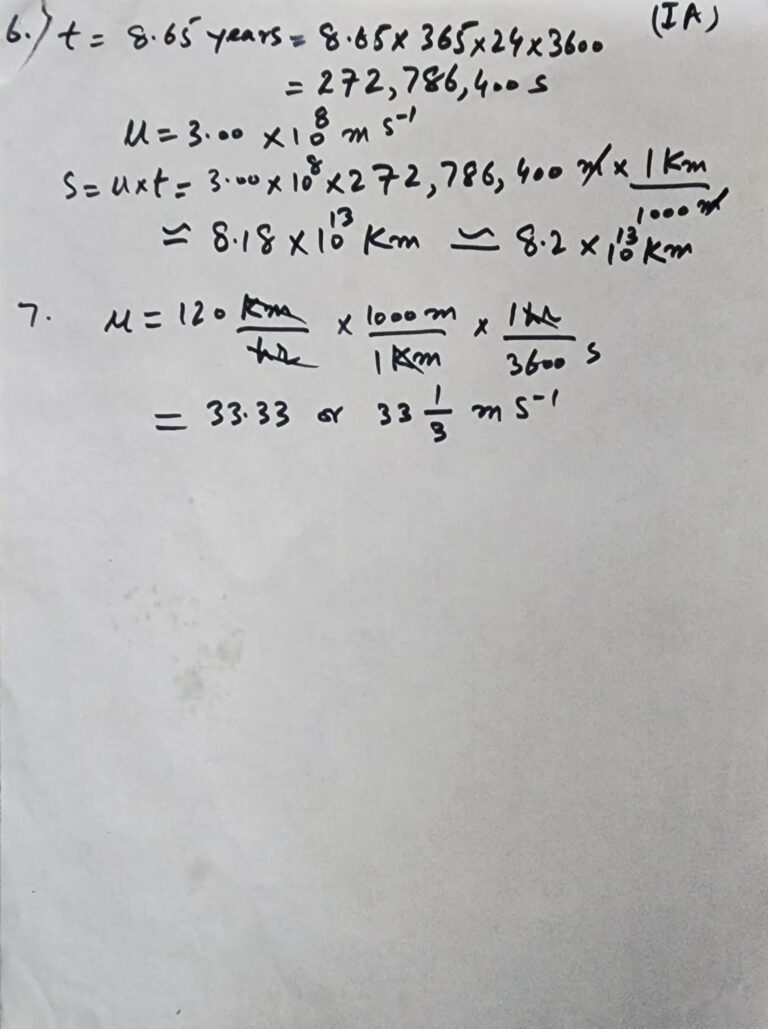 6.) t = 8.65 years = 8.65 x 365 x 24 x 3600 (IA)
= 272,786,400 s
u = 3.00 x 10⁸ m s⁻¹
S = u x t = 3.00 x 10⁸ x 272,786,400 m x 1 Km / 1000 m
≃ 8.18 x 10¹³ Km ≃ 8.2 x 10¹³ Km
7. u = 120 Km/hr x 1000 m / 1 Km x 1 hr / 3600 s
= 33.33 or 33 1/3 m s⁻¹